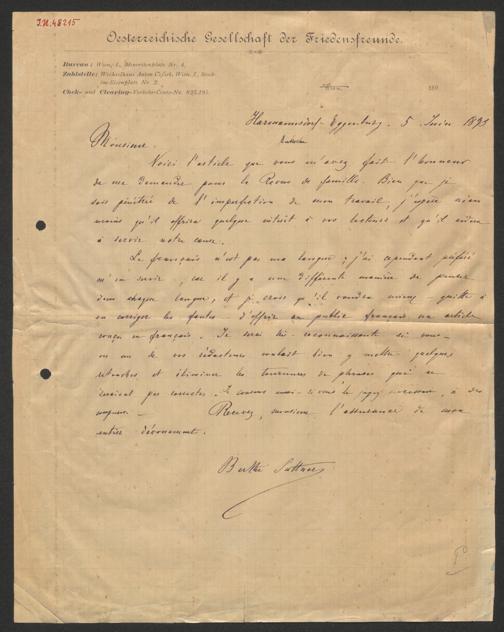 I.N. 48215
Oesterreichische Gesellschaft der Friedensfreunde.
Bureau: Wien, I., Minoritenplatz Nr. 4.
Zahlstelle: Wechselhaus Wien, I.,
Nr. 2.
Chek- und Clearing-Verkehr-Conto-Nr.
Wien 189
Harmannsdorf-Eggenburg. 5 Juin 1893
Monsieur.
Voici l'article que vous m'avez fait l'honneur
de me demander pour la Revue de famille. Bien que je
sois pénétrée de l'imperfection de mon travail, j'espère
moins qu'il offrira quelque intérêt à vos lecteurs et qu'il
à servir notre cause.
Le français n'est pas ma langue; j'ai cependant préféré
m'en servir, car il y a une différente manière de penser
dans chaque langue, et je crois qu'il vaudra mieux - quitte à
en corriger les fautes - d'offrir au public français un article
conçu en français. Je serai très reconnaissante si vous
ou un de vos rédacteurs voulait bien y mettre quelques
retouches et éliminer les tournures de phrases qui ne
seraient pas correctes.
Recevez, monsieur l'assurance de mon
entier dévouement.
Bertha Suttner